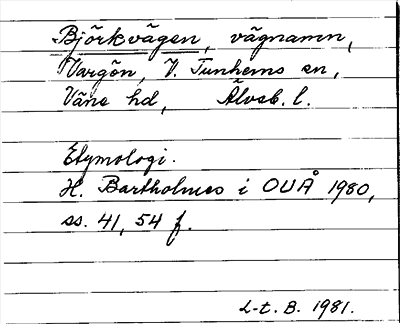 Björkvägen, vägnamn,
Vargön, V. Tunhems sn,
Väne hd, Älvsb. l.
Etymologi.
H. Bartholmes i OUÅ 1980,
ss. 41, 54 f.
L-t. B. 1981.